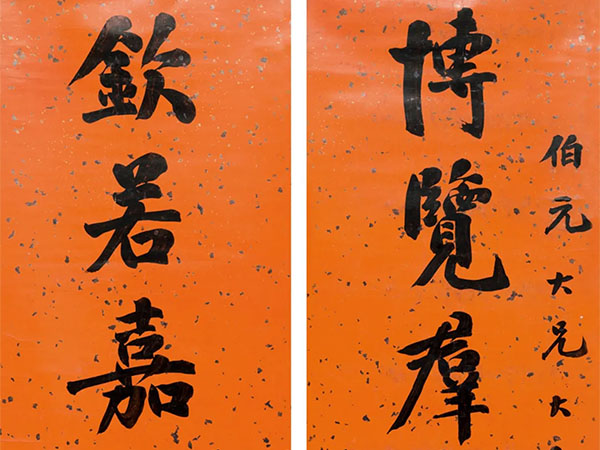 伯元大兄大
博覽羣
欽若嘉